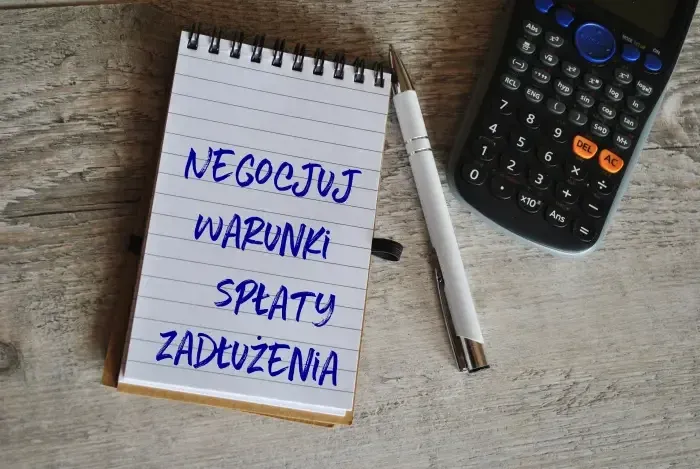 NEGOCJUJ
WARUNKi
SPŁATY
ZADŁUŻENiA
Abs
x³
hyp
sin
cos
tan
RCL
ENG
(
)
S⇔D
M+
7
8
9
DEL
AC
4
5
6
×
÷
1
2
3
+
−
0
•
×10ˣ
Ans
=